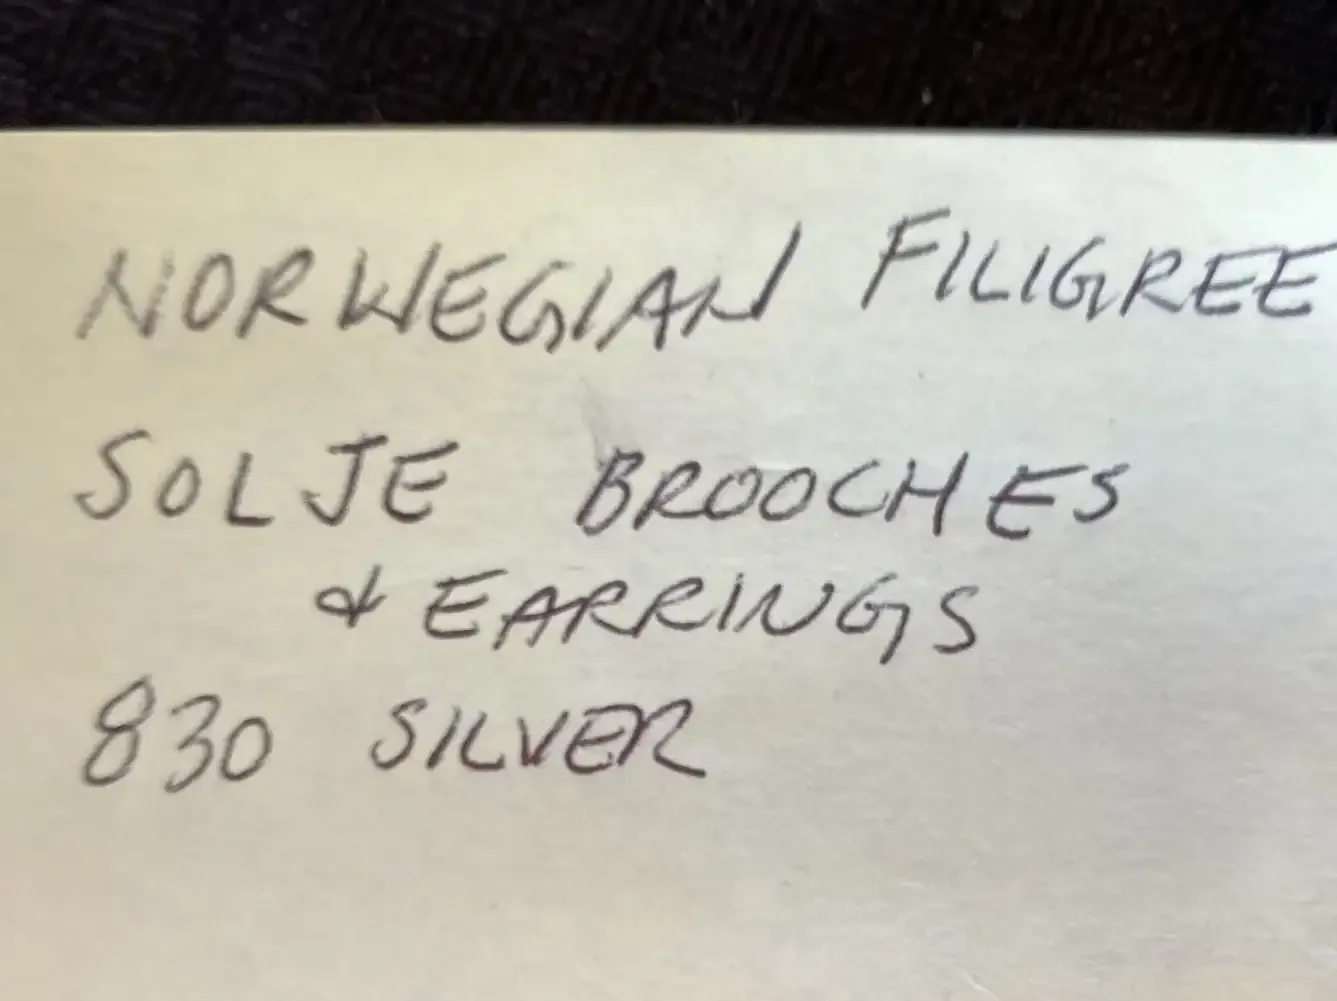 NORWEGIAN FILIGREE
SOLJE BROOCHES
& EARRINGS
830 SILVER